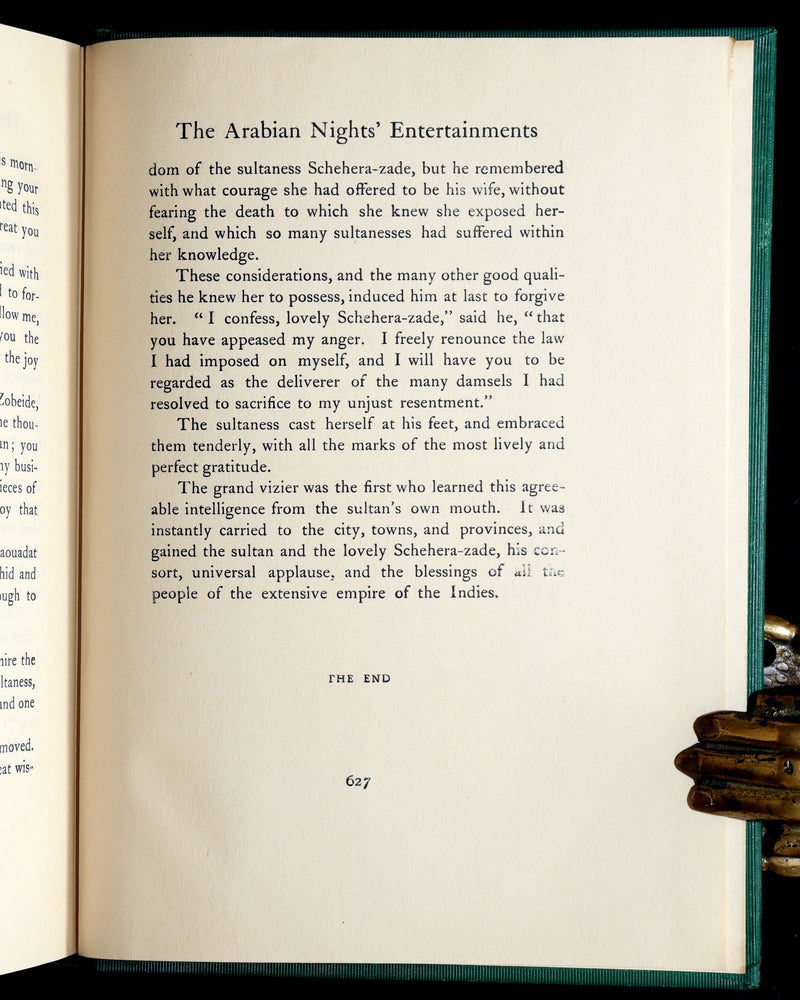 s morn-
ng your
ted this
reat you
ied with
to for-
llow me,
you the
the joy
Zobeide,
ne thou-
an; you
ny busi-
ieces of
oy that
aouadat
hid and
ugh to
nire the
ltaness,
and one
moved.
eat wis-
The Arabian Nights’ Entertainments
dom of the sultaness Schehera-zade, but he remembered
with what courage she had offered to be his wife, without
fearing the death to which she knew she exposed her-
self, and which so many sultanesses had suffered within
her knowledge.
These considerations, and the many other good quali-
ties he knew her to possess, induced him at last to forgive
her. “I confess, lovely Schehera-zade,” said he, “that
you have appeased my anger. I freely renounce the law
I had imposed on myself, and I will have you to be
regarded as the deliverer of the many damsels I had
resolved to sacrifice to my unjust resentment.”
The sultaness cast herself at his feet, and embraced
them tenderly, with all the marks of the most lively and
perfect gratitude.
The grand vizier was the first who learned this agree-
able intelligence from the sultan’s own mouth. It was
instantly carried to the city, towns, and provinces, and
gained the sultan and the lovely Schehera-zade, his con-
sort, universal applause, and the blessings of all the
people of the extensive empire of the Indies.
THE END
627